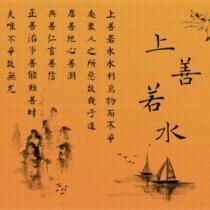 上善若水
上善若水水利萬物而不爭
處衆人之所惡故幾于道
居善地心善淵
與善仁言善信
正善治事善能動善时
夫唯不爭故無尤